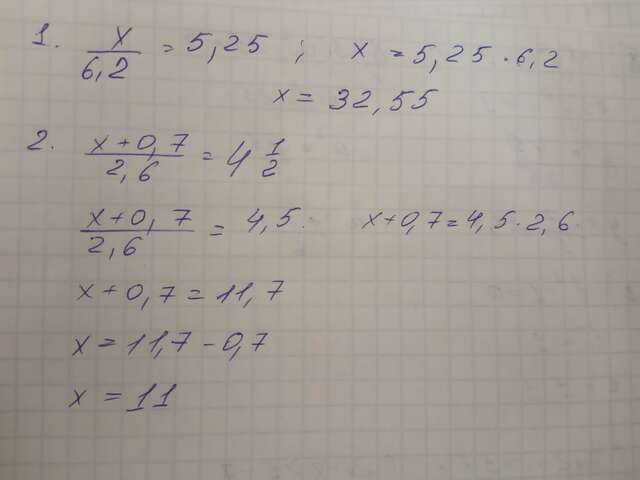 1. x/6,2 = 5,25 ; x = 5,25 · 6,2
x = 32,55
2. x+0,7/2,6 = 4 1/2
x+0,7/2,6 = 4,5. x+0,7=4,5·2,6
x+0,7=11,7
x=11,7-0,7
x=11